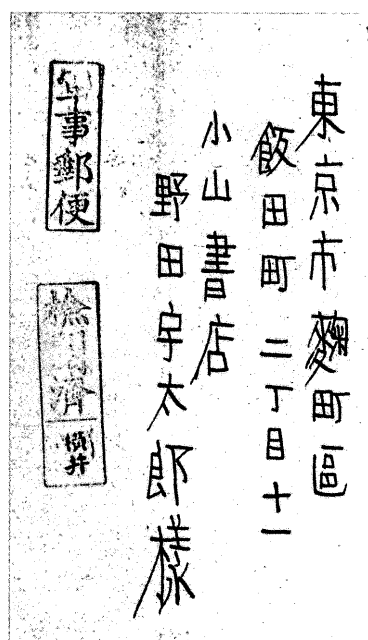 東京市麴町區
飯田町二丁目十一
小山書店
野田宇太郎様
軍事郵便
検閲濟
横井